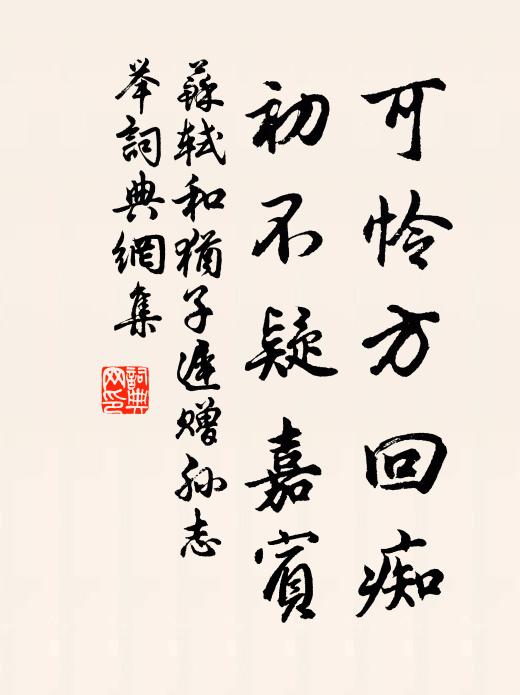 可怜方回痴
初不疑嘉賓
蘇軾和猶子遲贈孙志
举詞典網集